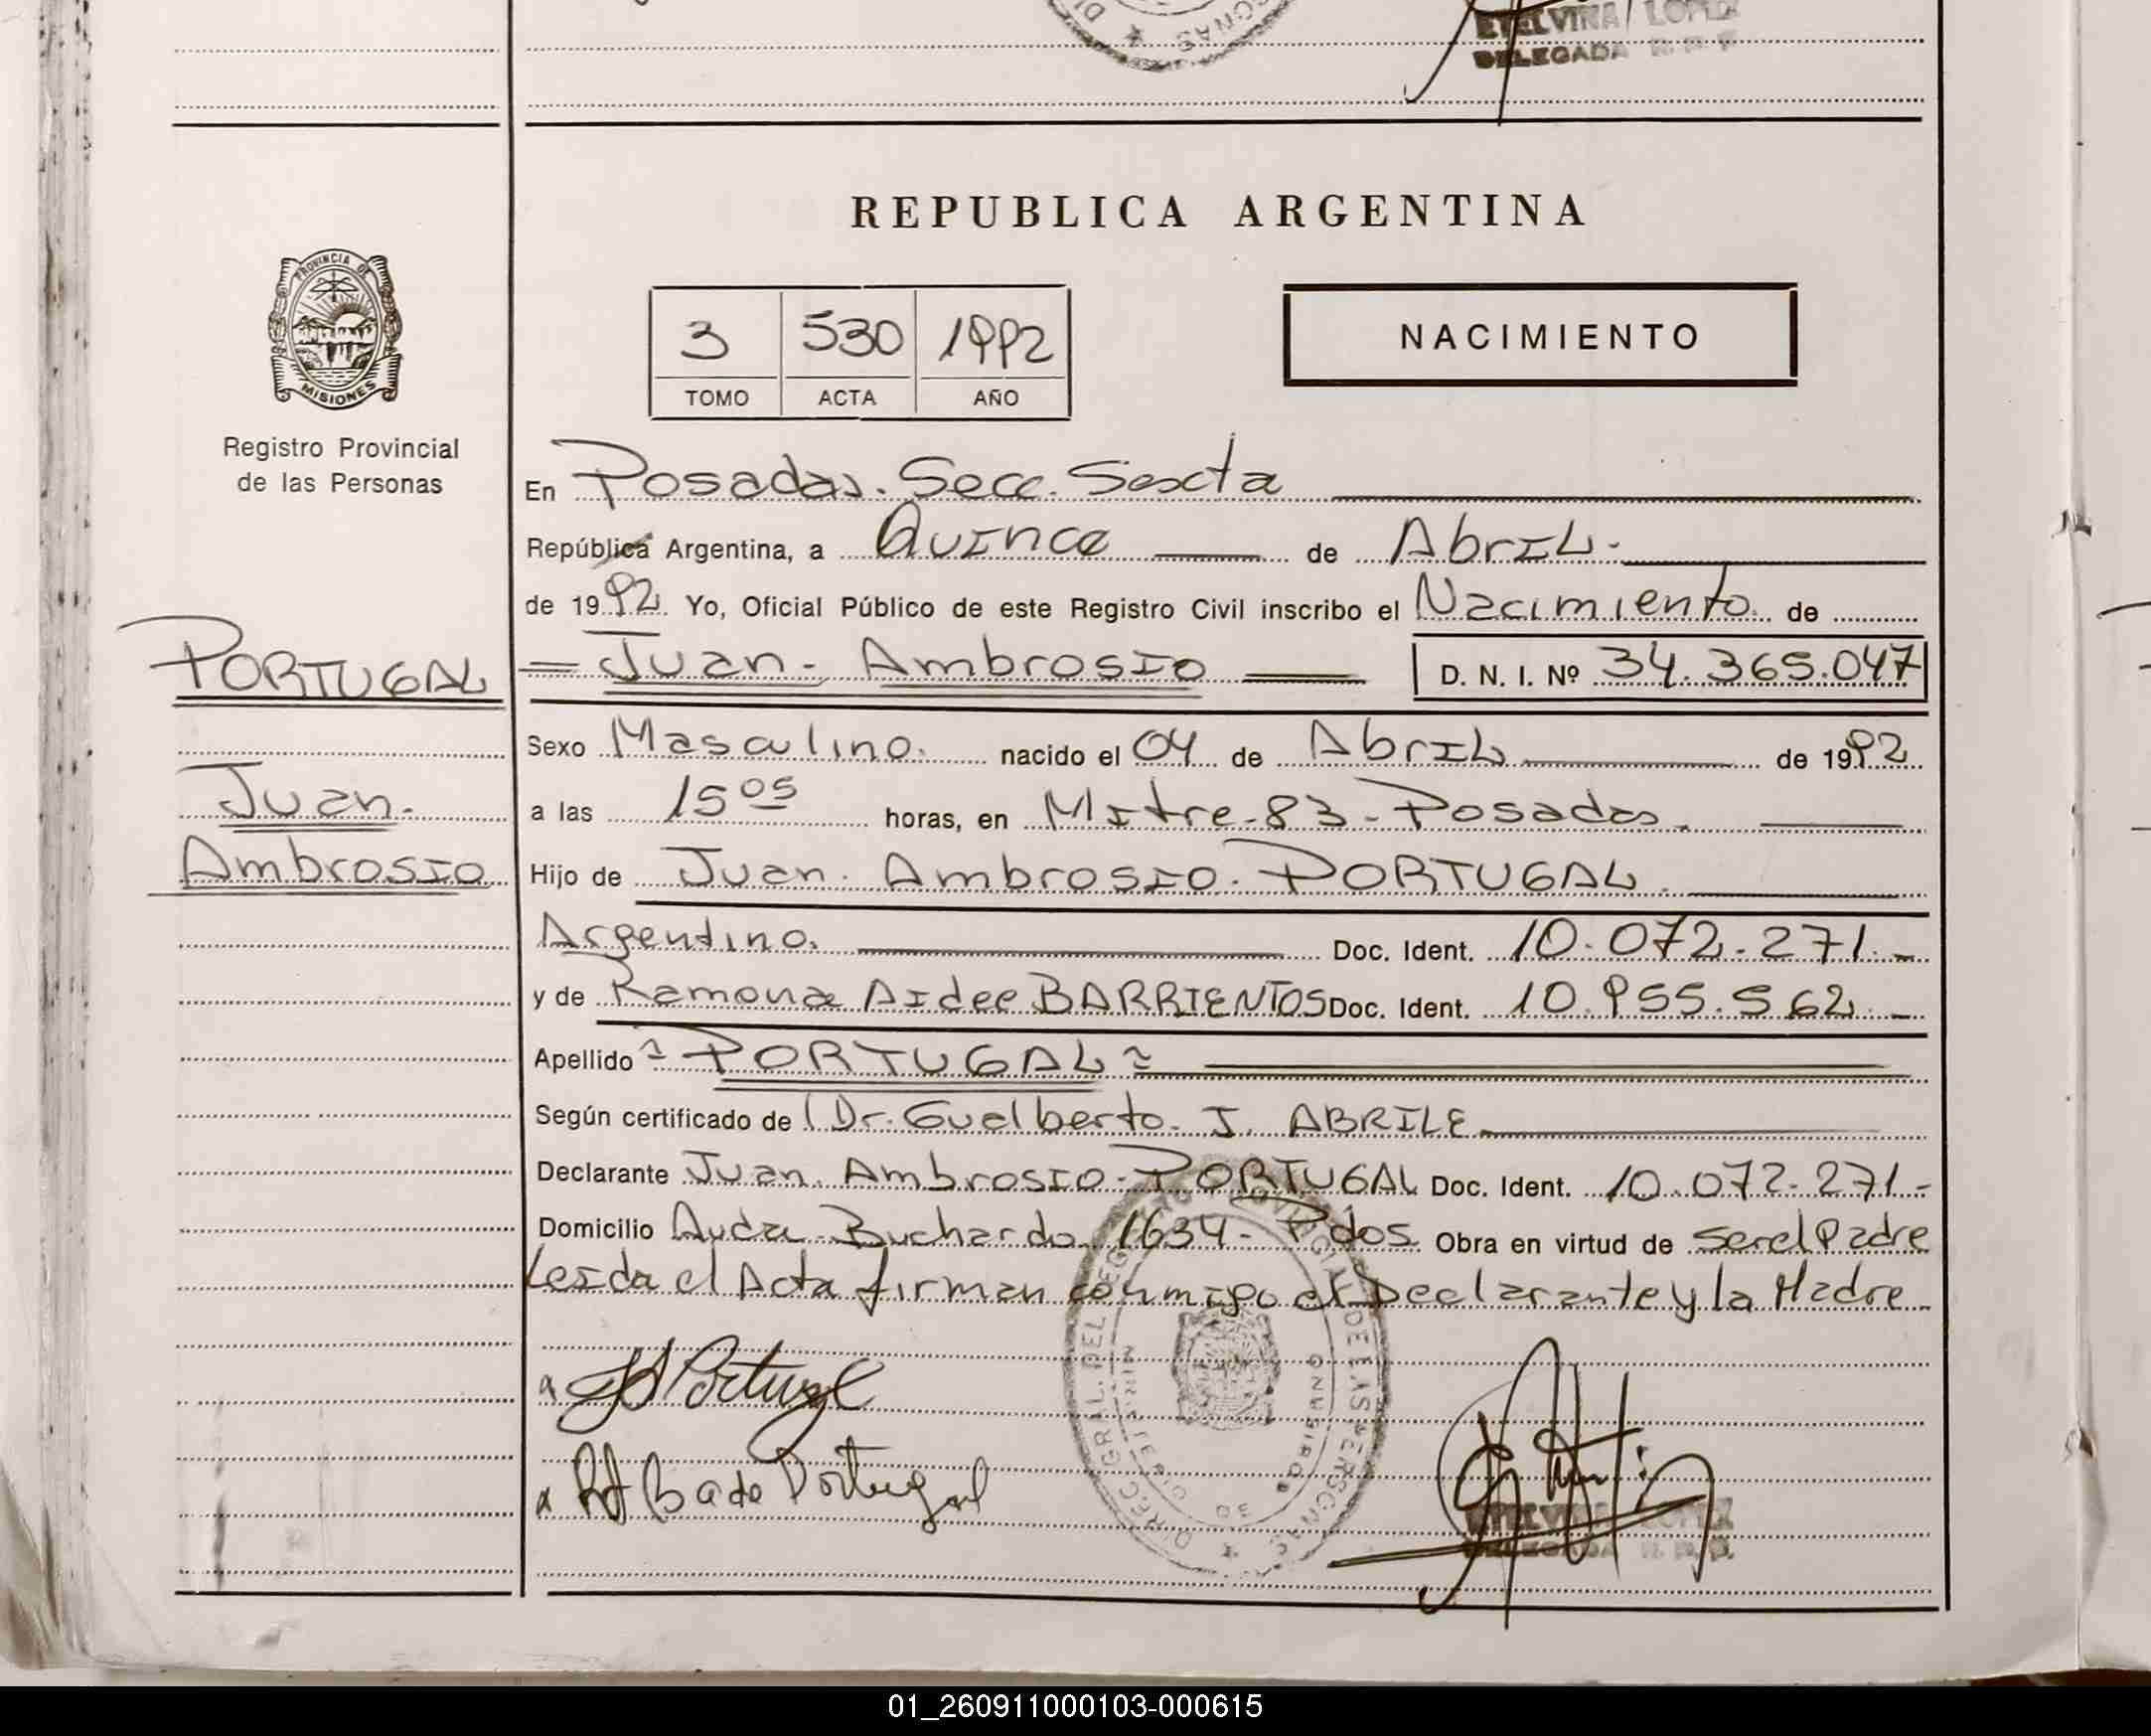 ETELVINA LOPEZ
DELEGADA R. P. P.
REPUBLICA ARGENTINA
PROVINCIA DE
MISIONES
Registro Provincial
de las Personas
3 530 1992
TOMO ACTA AÑO
NACIMIENTO
En Posadas. Secc. Sexta
República Argentina, a Quince de Abril.
de 1992. Yo, Oficial Público de este Registro Civil inscribo el Nacimiento de
PORTUGAL
Juan.
Ambrosio
Juan - Ambrosio D. N. I. Nº 34.365.047
Sexo Masculino. nacido el 04 de Abril de 1992
a las 15 05 horas, en Mitre-83-Posadas.
Hijo de Juan. Ambrosio. PORTUGAL.
Argentino. Doc. Ident. 10.072.271.-
y de Ramona Aidee BARRIENTOS Doc. Ident. 10.955.562.-
Apellido PORTUGAL
Según certificado de Dr. Gualberto. J. ABRILE
Declarante Juan. Ambrosio-PORTUGAL Doc. Ident. 10.072.271-
Domicilio Avda Buchardo 1634- Pdos. Obra en virtud de ser el Padre
Leida el Acta firman conmigo el Declarante y la Madre
JA Portugal
Ba de Portugal
ETELVINA LOPEZ
DELEGADA R. P. P.
01_260911000103-000615